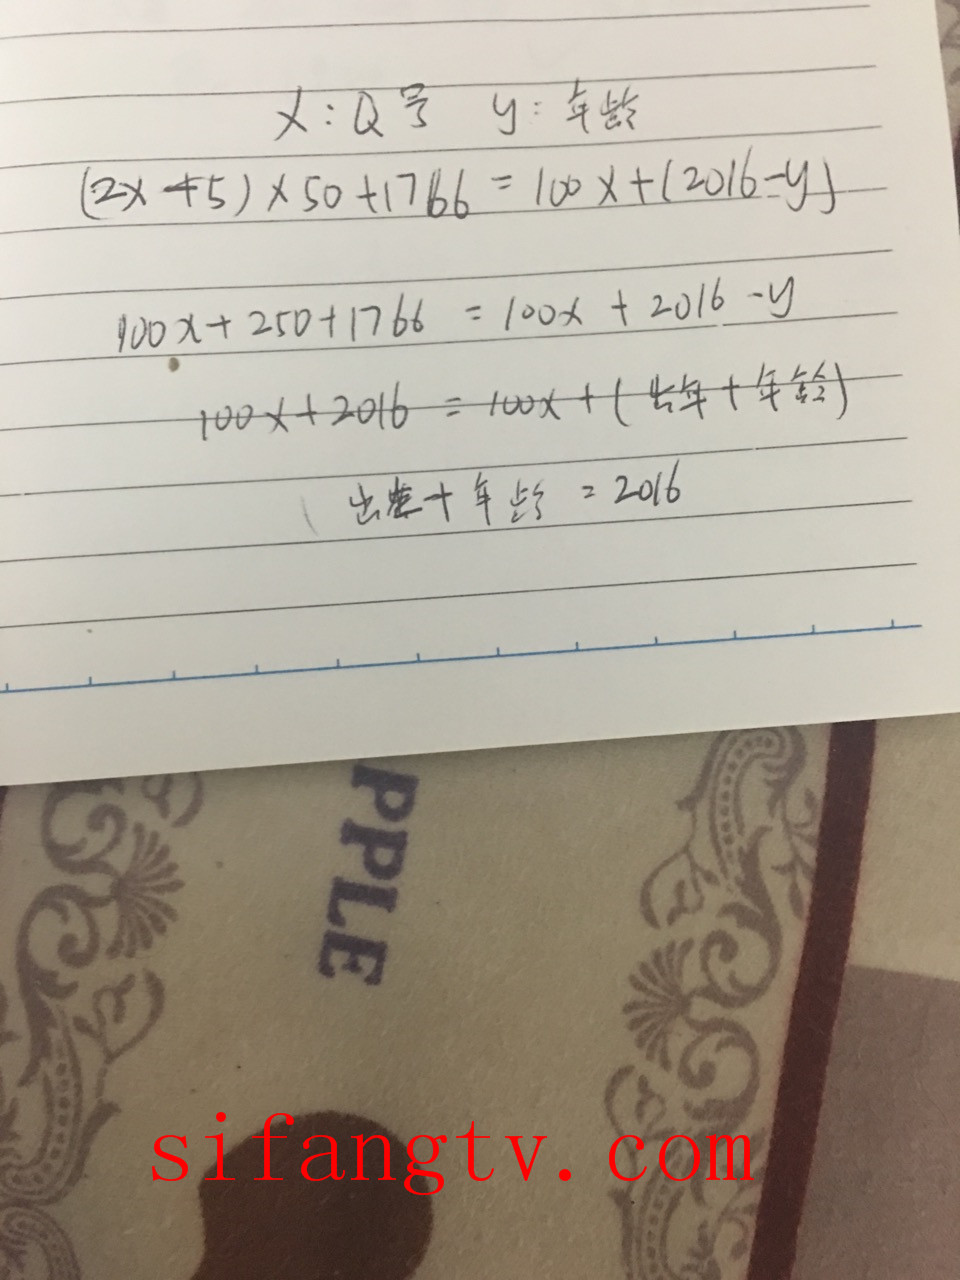 x:Q号 y:年龄
(2x+5)×50+1766=100x+(2016-y)
100x+250+1766=100x+2016-y
100x+2016=100x+(出年+年龄)
出生+年龄=2016
PPLE
sifangtv.com